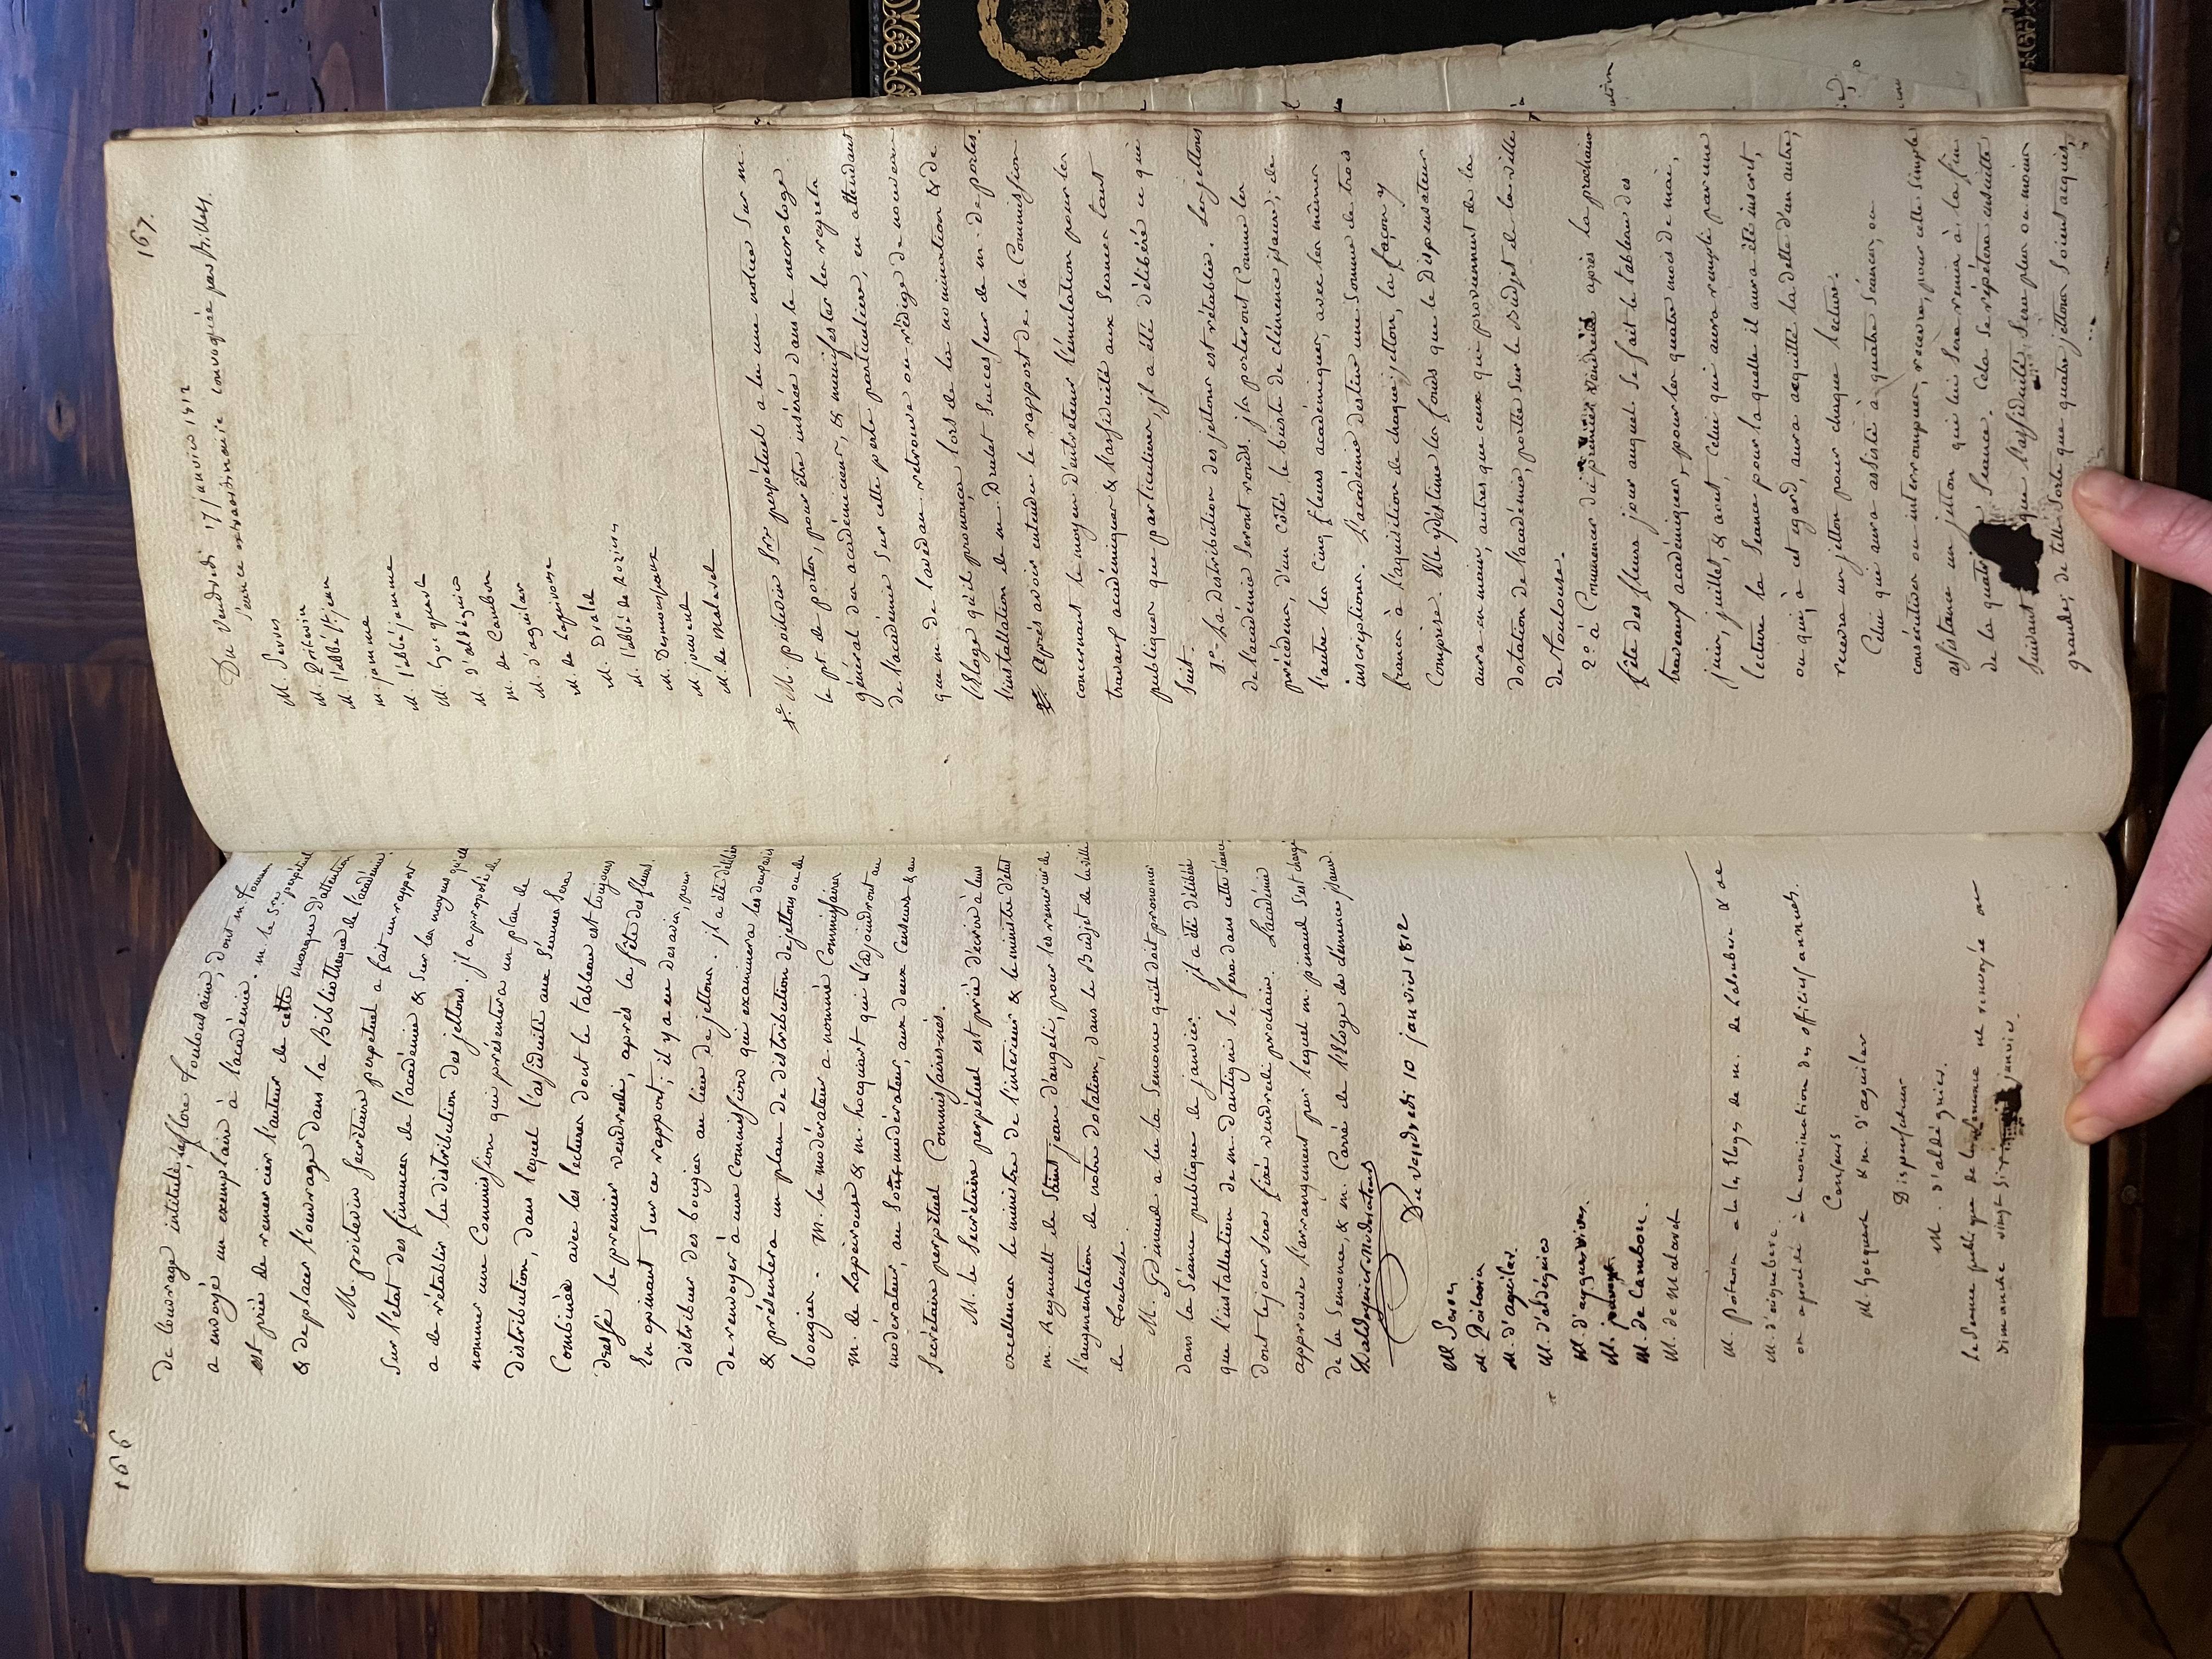 166
De l'ouvrage intitulé, la flore toulousaine, dont m.
a envoyé un exemplaire à l'académie. m. le Sre perpétuel
est prié de remercier l'auteur de cette marque d'attention
& de placer l'ouvrage dans la Bibliothèque de l'académie.
M. poitevin Secrétaire perpétuel a fait un rapport
Sur l'état des finances de l'académie & Sur les moyens qu'elle
a de rétablir la distribution des jettons. il a proposé de
nommer une Commission qui présentera un plan de
distribution, dans lequel l'assiduité aux Séances Sera
Combinée avec les lectures dont le tableau est toujours
dressé le premier vendredi, après la fête des fleurs.
En opinant Sur ce rapport, il y a eu des avis, pour
distribuer des bougies au lieu de jettons. il a été délibéré
de renvoyer à une Commission qui examinera les deux
& présentera un plan de distribution de jettons ou de
bougies. M. le modérateur a nommé Commissaires
m. de Lapeirouse & m. hocquart qui s'adjoindront au
modérateur, au Sousmodérateur, aux deux Censeurs & au
Secrétaire perpétuel Commissaires-nés.
M. le Secrétaire perpétuel est prié d'écrire à leurs
excellences le ministre de l'intérieur & le ministre d'état
m. Regnault de Saint jean d'angeli, pour les remercier de
l'augmentation de notre dotation, dans le Budjet de la ville
de Toulouse.
M. a lu la Semonce qu'il doit prononcer
dans la Séance publique de janvier. il a été délibéré
que l'installation de m. Dantigni Se fera dans cette Séance
dont le jour Sera fixé vendredi prochain. L'académie
approuve l'arrangement par lequel m. pinaud S'est chargé
de la Semonce, & m. Carré de l'Eloge de clémence isaure.
Du vendredi 10 janvier 1812
M Serres
M. Poitevin
M. d'aguilar.
M. d'aldéguier
M. jamme
M. de Cambon.
M. de Malaret
M. Poitevin a lu les Eloges de m. de Laloubère & de
M. d'aiguebere.
on a procédé à la nomination des officiers annuels.
Censeurs
M. hocquart & m. d'aguilar
Dispensateur
M. d'aldéguier.
la Séance publique de la Semonce est renvoyée au
dimanche vingt Six janvier.
167.
Du Vendredi 17 janvier 1812
Séance extraordinaire convoquée par billets.
M. Serres
M. Poitevin
M. l'abbé St. jean
M. jamme
M. l'abbé jamme
M. hocquart
M. d'aldéguier
M. de Cambon
M. d'aguilar
M. de Lapeirouse
M. Dralet
M. l'abbé de Rozières
M. Desmousseaux
M. jouvent
M. de Malaret
M. poitevin Sre perpétuel a lu une notice Sur m.
le pt. de portes, pour être insérée dans le nécrologe
général des académiciens, & manifester les regrets
de l'académie Sur cette perte particulière, en attendant
que m. de Lavedan retrouve ou rédige de nouveau
l'Eloge qu'il prononça, lors de la nomination & de
l'installation de m. Dralet Successeur de m. de portes.
Après avoir entendu le rapport de la Commission
concernant le moyen d'entretenir l'émulation pour les
travaux académiques & l'assiduité aux Séances tant
publiques que particulières, il a été délibéré ce qui
Suit.
1°. La distribution des jettons est rétablie. Les jettons
de l'académie Seront ronds. ils porteront Comme les
précédens, d'un côté le buste de clémence isaure, de
l'autre les Cinq fleurs académiques, avec les mêmes
inscriptions. L'académie destine une Somme de trois
francs à l'aquisition de chaque jetton, la façon y
Comprise. Elle y destine les fonds que le Dispensateur
aura en main, autres que ceux qui proviennent de la
dotation de l'académie, portée Sur le Budjet de la ville
de Toulouse.
2°. à Commencer du premier vendredi après la prochaine
fête des fleurs jour auquel Se fait le tableau des
travaux académiques, pour les quatre mois de mai,
juin, juillet, & aout, Celui qui aura rempli par une
lecture la Séance pour laquelle il aura été inscrit,
ou qui, à cet egard, aura aquitté la dette d'un autre,
recevra un jetton pour chaque lecture.
Celui qui aura assisté à quatre Séances, ou
consécutives ou interrompues, recevra, pour cette Simple
assistance un jetton qui lui Sera remis à la fin
de la quatrième Séance. Cela Se répétera ensuite
Suivant que l'assiduité Sera plus ou moins
grande; de telle Sorte que quatre jettons Soient acquis,